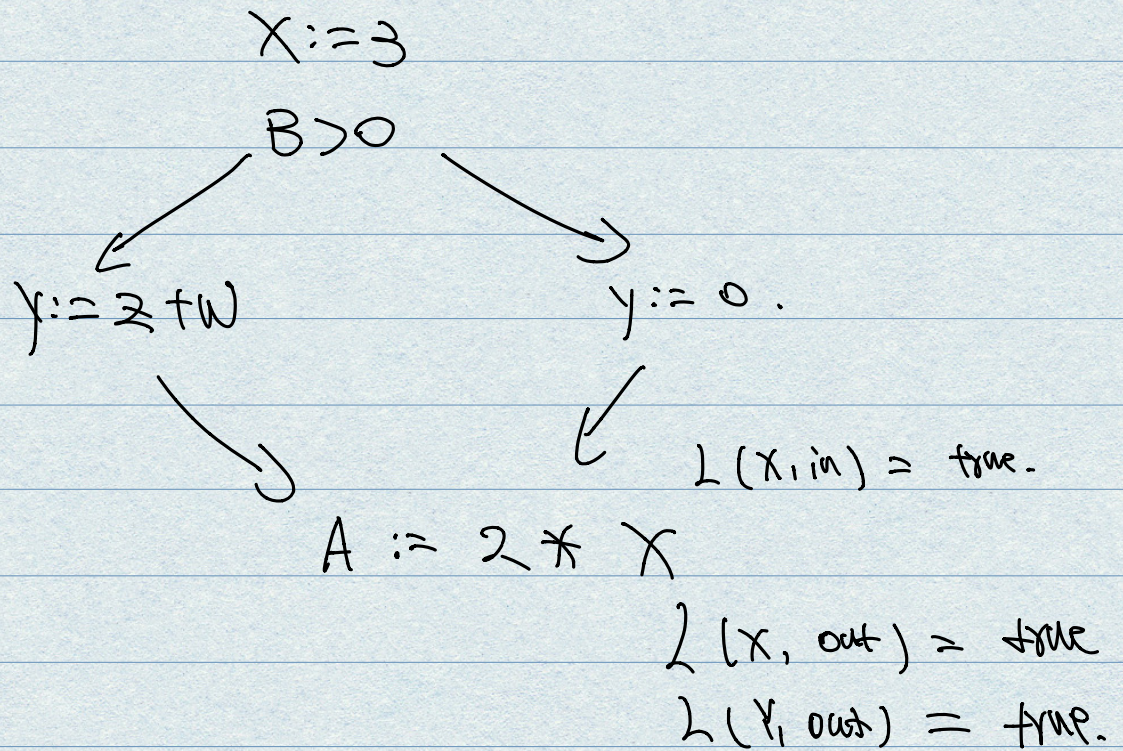 X := 3
B > 0
y := z + w
y := 0 .
L(x, in) = true.
A := 2 * X
L(x, out) = true
L(Y, out) = true.